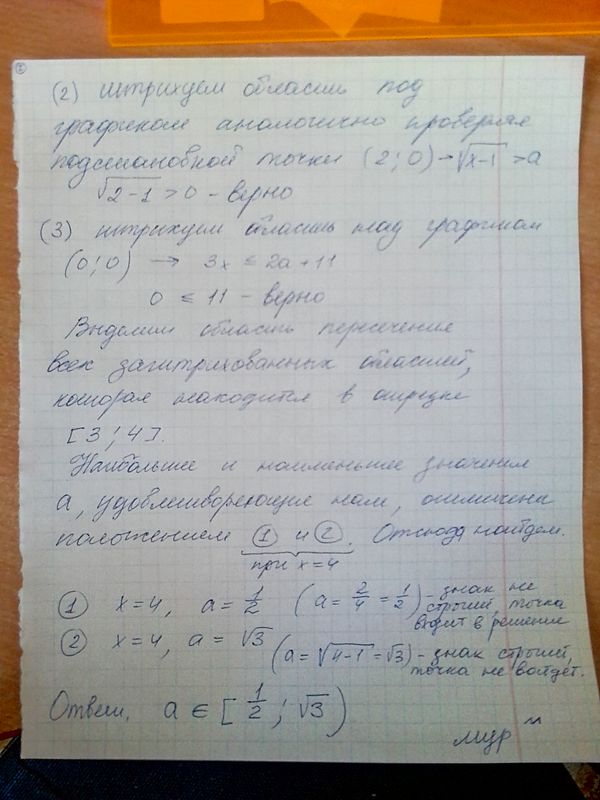 ②
(2) штрихуем область под
графиком аналогично проверяя
подстановкой точки (2; 0) → √(x-1) > a
√(2-1) > 0 - верно
(3) штрихуем область над графиком
(0; 0) → 3x ≤ 2a + 11
0 ≤ 11 - верно
Выделим область пересечения
всех заштрихованных областей,
которая находится в отрезке
[3; 4].
Наибольшее и наименьшее значения
a, удовлетворяющие нам, отмечены
положением ① и ②. Отсюда найдем.
при x=4
① x=4, a = 1/2 (a = 2/4 = 1/2) - знак не
строгий, точка
входит в решение
② x=4, a = √3 (a = √(4-1) = √3) - знак строгий,
точка не войдёт.
Ответ. a ∈ [1/2; √3)
мур ^^